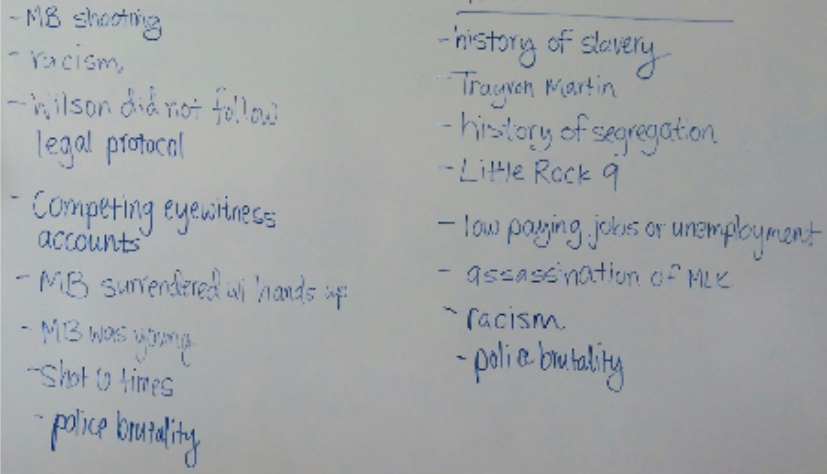 - MB shooting
- racism
- Wilson did not follow
legal protocol
- Competing eyewitness
accounts
- MB surrendered w/ hands up
- MB was young
- Shot 6 times
- police brutality
- history of slavery
- Trayvon Martin
- history of segregation
- Little Rock 9
- low paying jobs or unemployment
- assassination of MLK
- racism
- police brutality